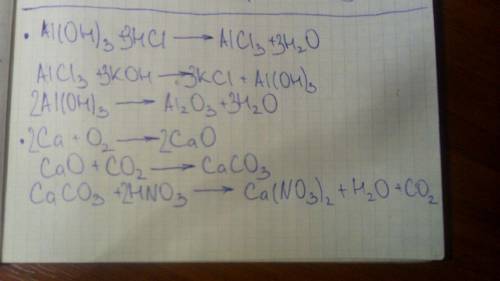 • Al(OH)₃ + 3HCl → AlCl₃ + 3H₂O
AlCl₃ + 3KOH → 3KCl + Al(OH)₃
2Al(OH)₃ → Al₂O₃ + 3H₂O
• 2Ca + O₂ → 2CaO
CaO + CO₂ → CaCO₃
CaCO₃ + 2HNO₃ → Ca(NO₃)₂ + H₂O + CO₂